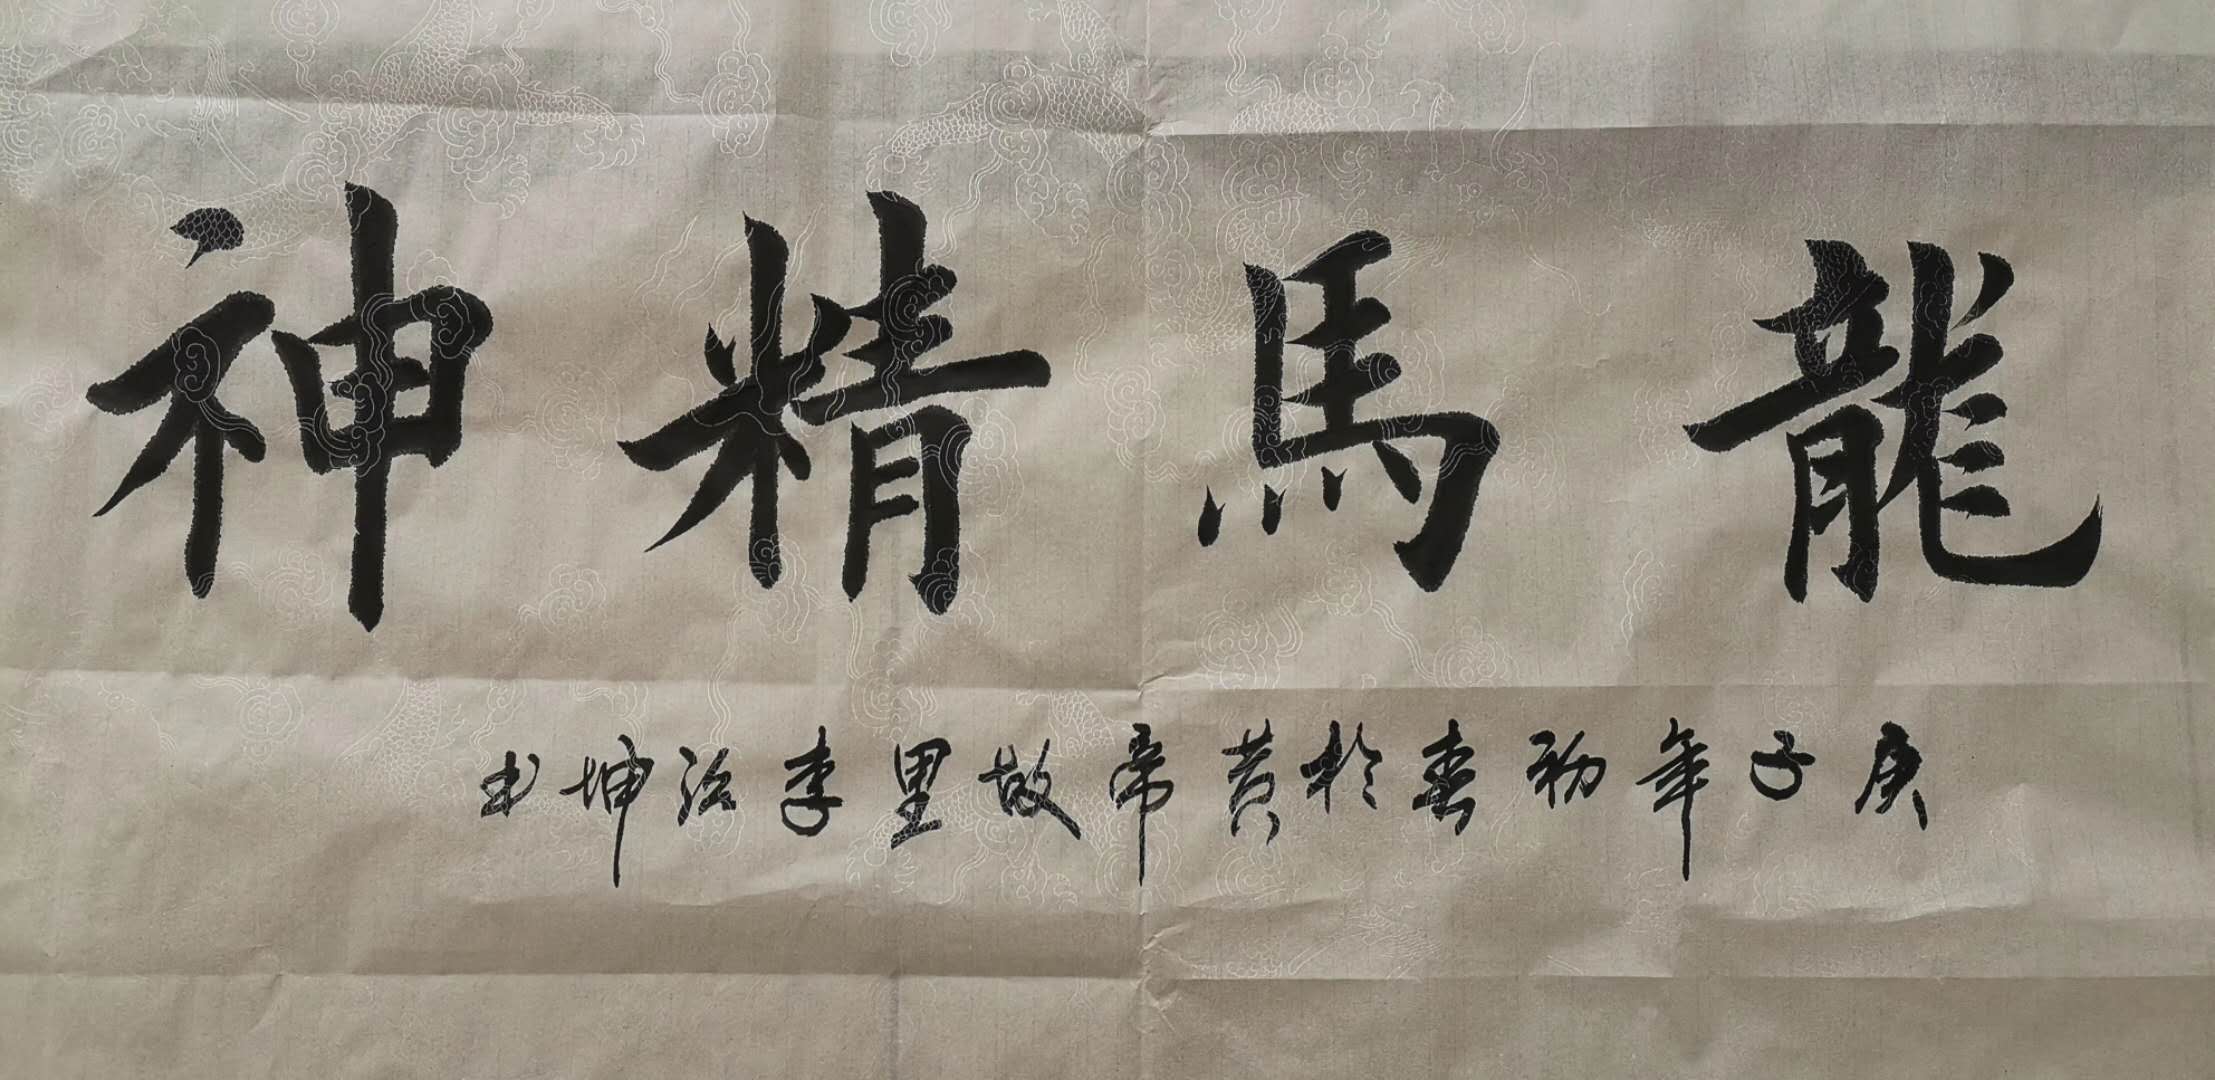 龍馬精神
庚子年初春於黄帝故里李治坤书